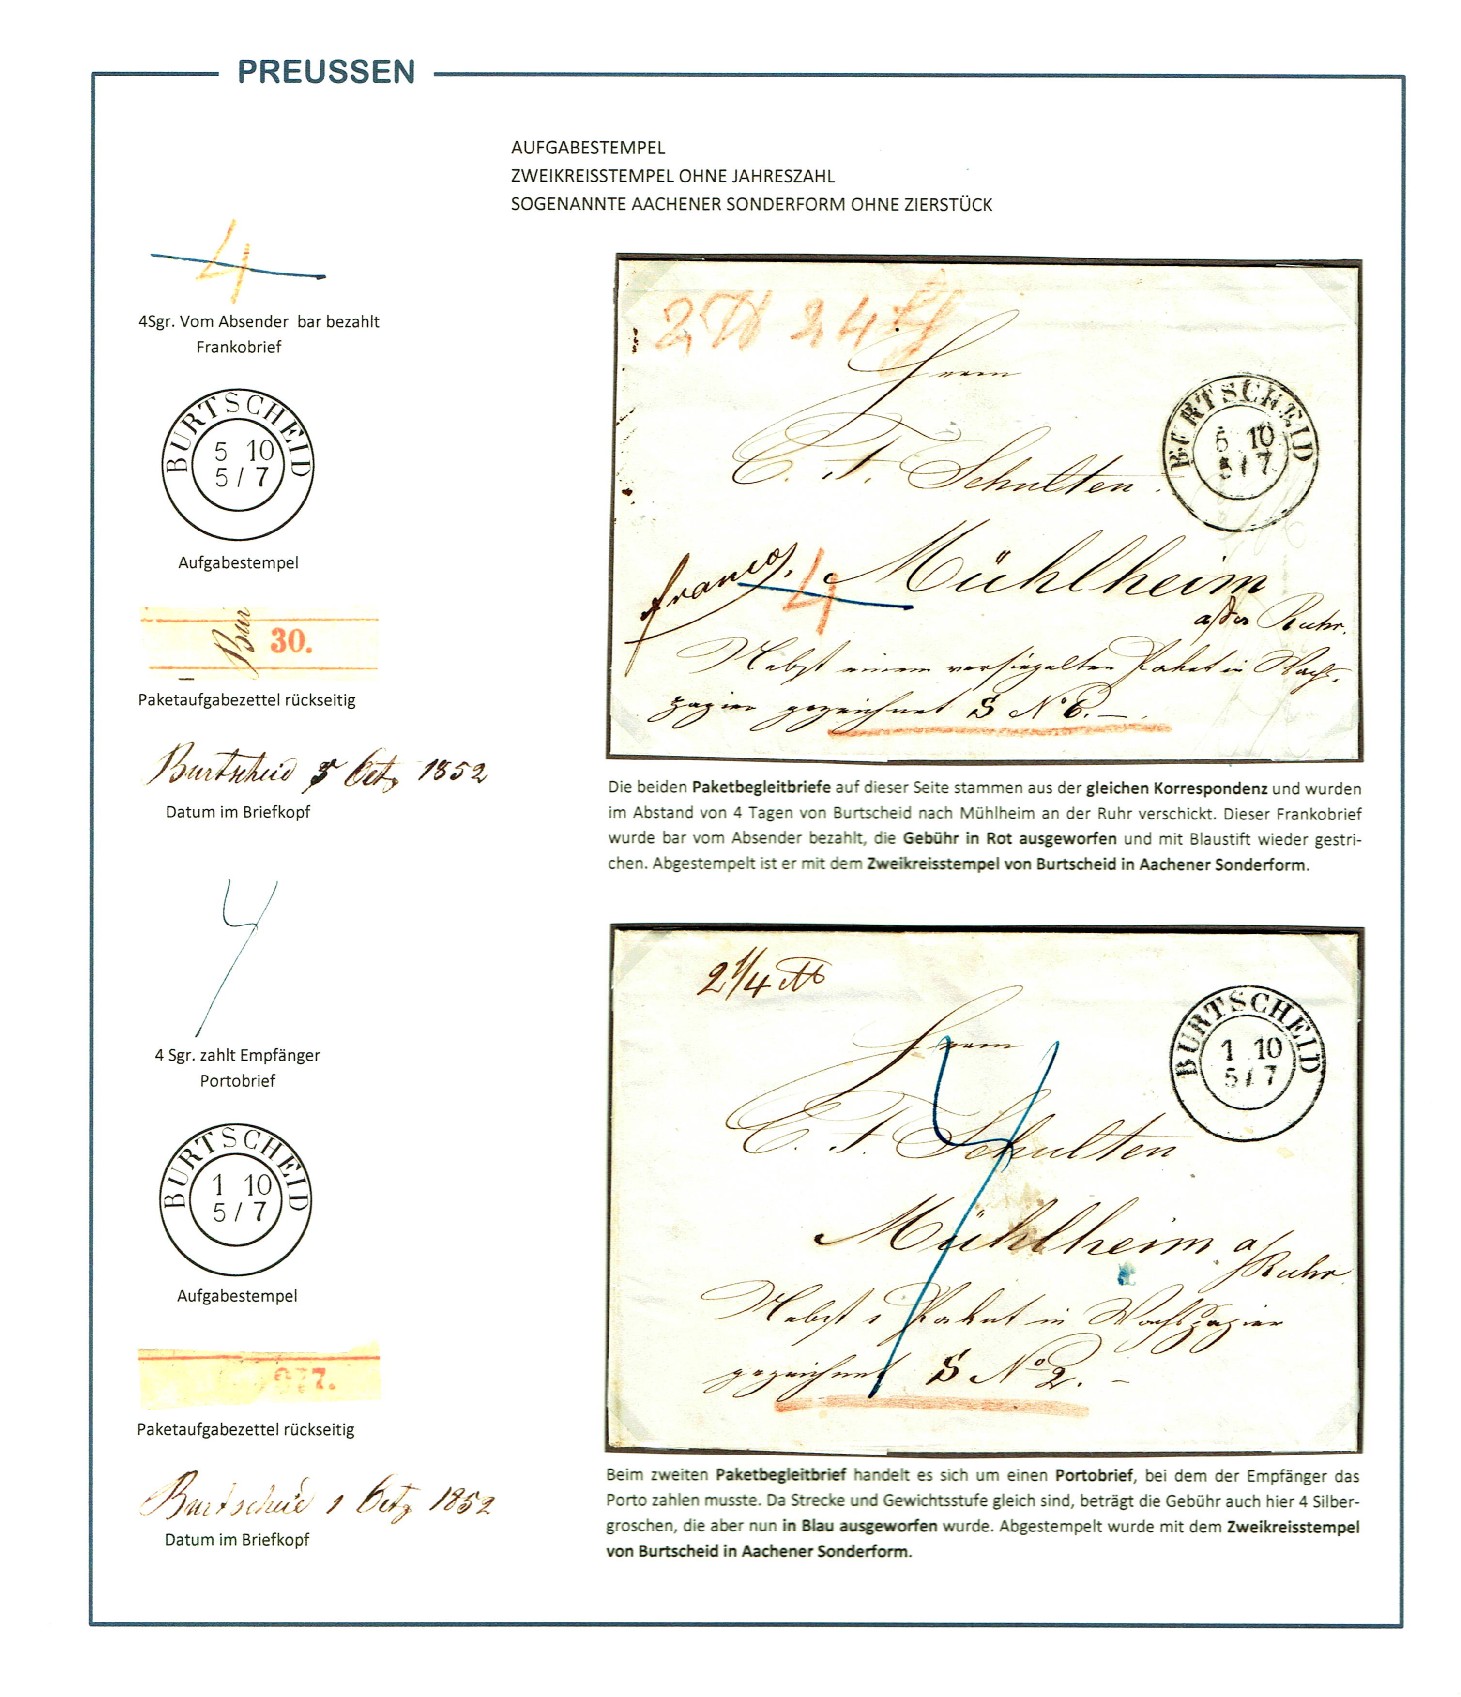 PREUSSEN
AUFGABESTEMPEL
ZWEIKREISSTEMPEL OHNE JAHRESZAHL
SOGENANNTE AACHENER SONDERFORM OHNE ZIERSTÜCK
4
4Sgr. Vom Absender bar bezahlt
Frankobrief
BURTSCHEID
5 10
5 / 7
Aufgabestempel
Bur
30.
Paketaufgabezettel rückseitig
Burtscheid 5 Octz 1852
Datum im Briefkopf
Herrn
C. F. Schulten
Mühlheim
a/der Ruhr.
franco.
4
Nebst einem versiegelten Paket in Wachs-
papier gezeichnet S No 6. –
BURTSCHEID
5 10
5 / 7
Die beiden Paketbegleitbriefe auf dieser Seite stammen aus der gleichen Korrespondenz und wurden
im Abstand von 4 Tagen von Burtscheid nach Mühlheim an der Ruhr verschickt. Dieser Frankobrief
wurde bar vom Absender bezahlt, die Gebühr in Rot ausgeworfen und mit Blaustift wieder gestri-
chen. Abgestempelt ist er mit dem Zweikreisstempel von Burtscheid in Aachener Sonderform.
4
4 Sgr. zahlt Empfänger
Portobrief
BURTSCHEID
1 10
5 / 7
Aufgabestempel
77.
Paketaufgabezettel rückseitig
Burtscheid 1 Octz 1852
Datum im Briefkopf
2 1/4
Herrn
C. F. Schulten
Mühlheim a/
Ruhr
4
Nebst 1 Paket in Wachspapier
gezeichnet S No 2. –
BURTSCHEID
1 10
5 / 7
Beim zweiten Paketbegleitbrief handelt es sich um einen Portobrief, bei dem der Empfänger das
Porto zahlen musste. Da Strecke und Gewichtsstufe gleich sind, beträgt die Gebühr auch hier 4 Silber-
groschen, die aber nun in Blau ausgeworfen wurde. Abgestempelt wurde mit dem Zweikreisstempel
von Burtscheid in Aachener Sonderform.